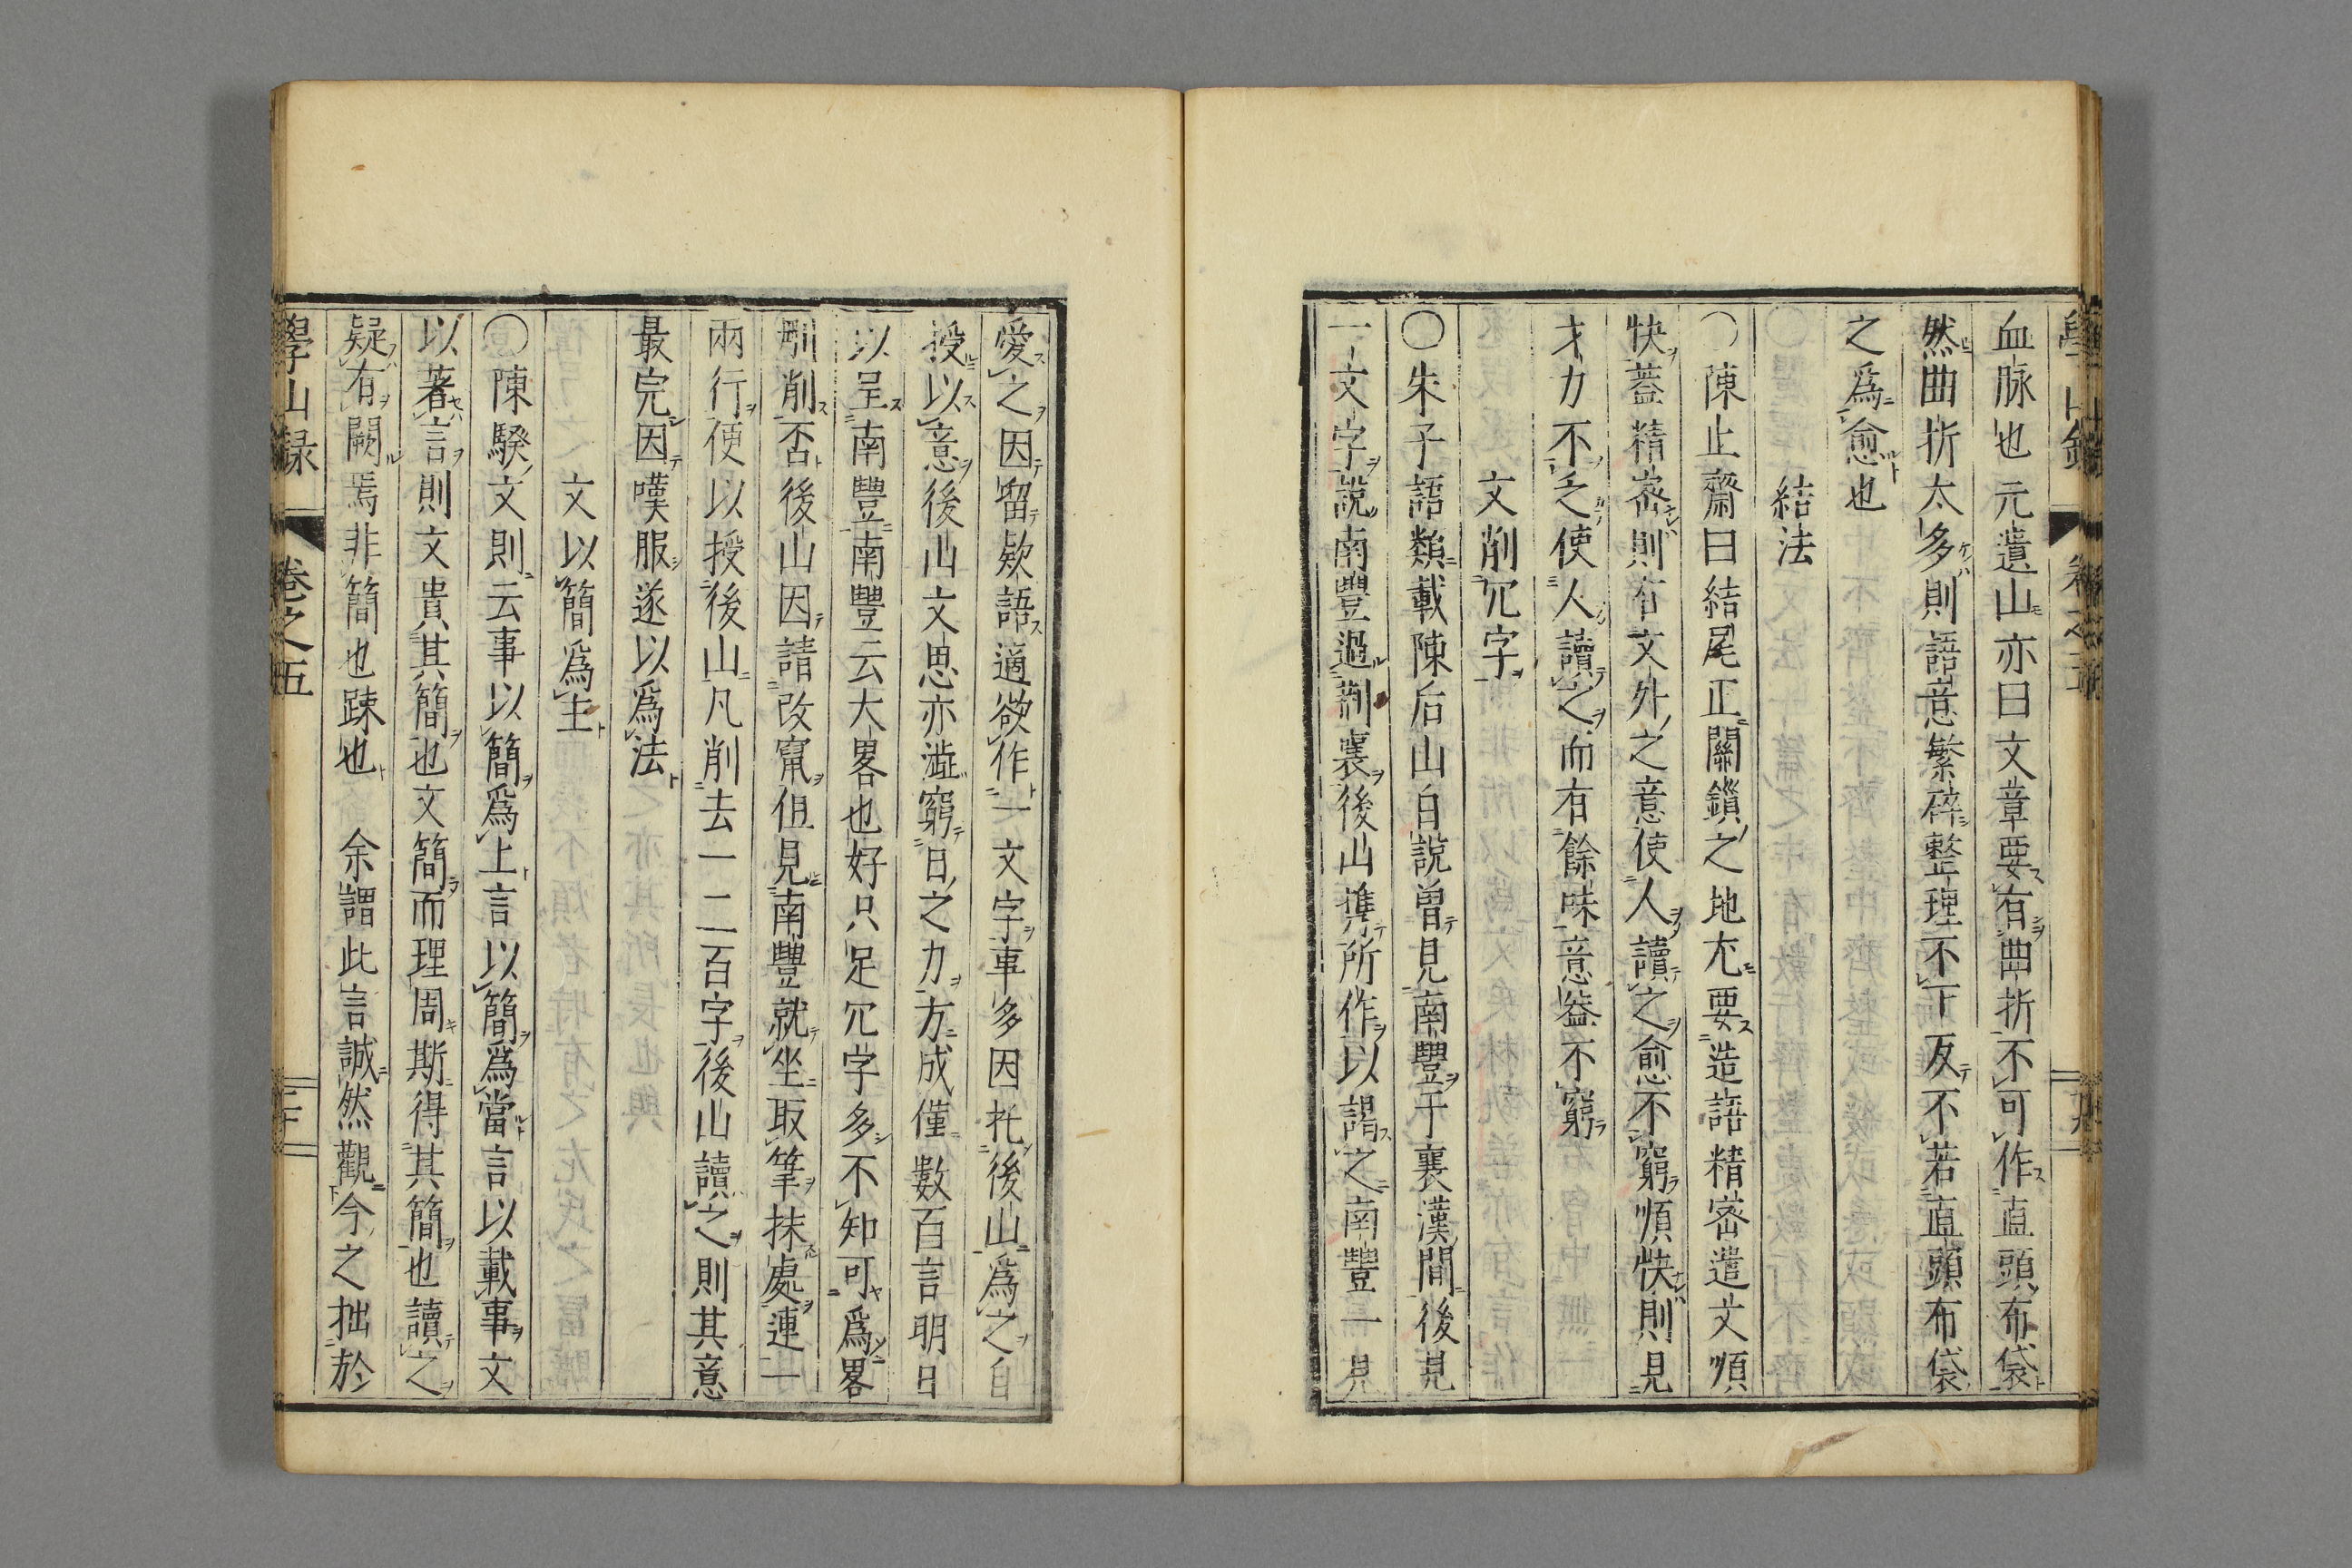 血脉也元遺山亦曰文章要有曲折不可作直頭布袋
然曲折太多則語意繁碎整理不下反不若直頭布袋
之爲愈也
結法
〇陳止齋曰結尾正關鎖之地尤要造語精密遣文順
快蓋精密則有文外之意使人讀之愈不窮順快則見
才力不乏使人讀之而有餘味意益不窮
文削冗字
〇朱子語類載陳后山自說曾見南豐于襄漢間後見
一文字說南豐過荆襄後山携所作以謁之南豐一見
愛之因留欵語適欲作一文字事多因托後山爲之自
授以意後山文思亦澁窮日之力方成僅數百言明日
以呈南豐南豐云大畧也好只是冗字多不知可爲畧
刪削否後山因請改竄但見南豐就坐取筆抹處連一
兩行便以授後山凡削去一二百字後山讀之則其意
最完因嘆服遂以爲法
文以簡爲主
〇陳騤文則云事以簡爲上言以簡爲當言以載事文
以著言則文貴其簡也文簡而理周斯得其簡也讀之
疑有闕焉非簡也踈也　余謂此言誠然觀今之拙於
學山録　卷之五